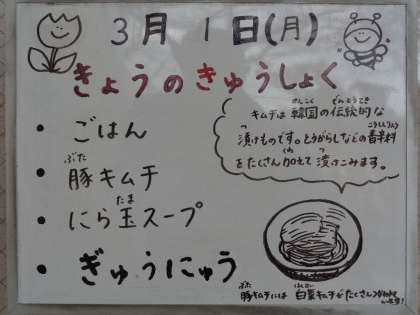 3月1日(月)
きょうのきゅうしょく
・ごはん
・豚キムチ
・にら玉スープ
・ぎゅうにゅう
キムチは韓国の伝統的な
漬けものです。とうがらしなどの香辛料
をたくさん加えて漬けこみます。
豚キムチには白菜キムチがたくさん